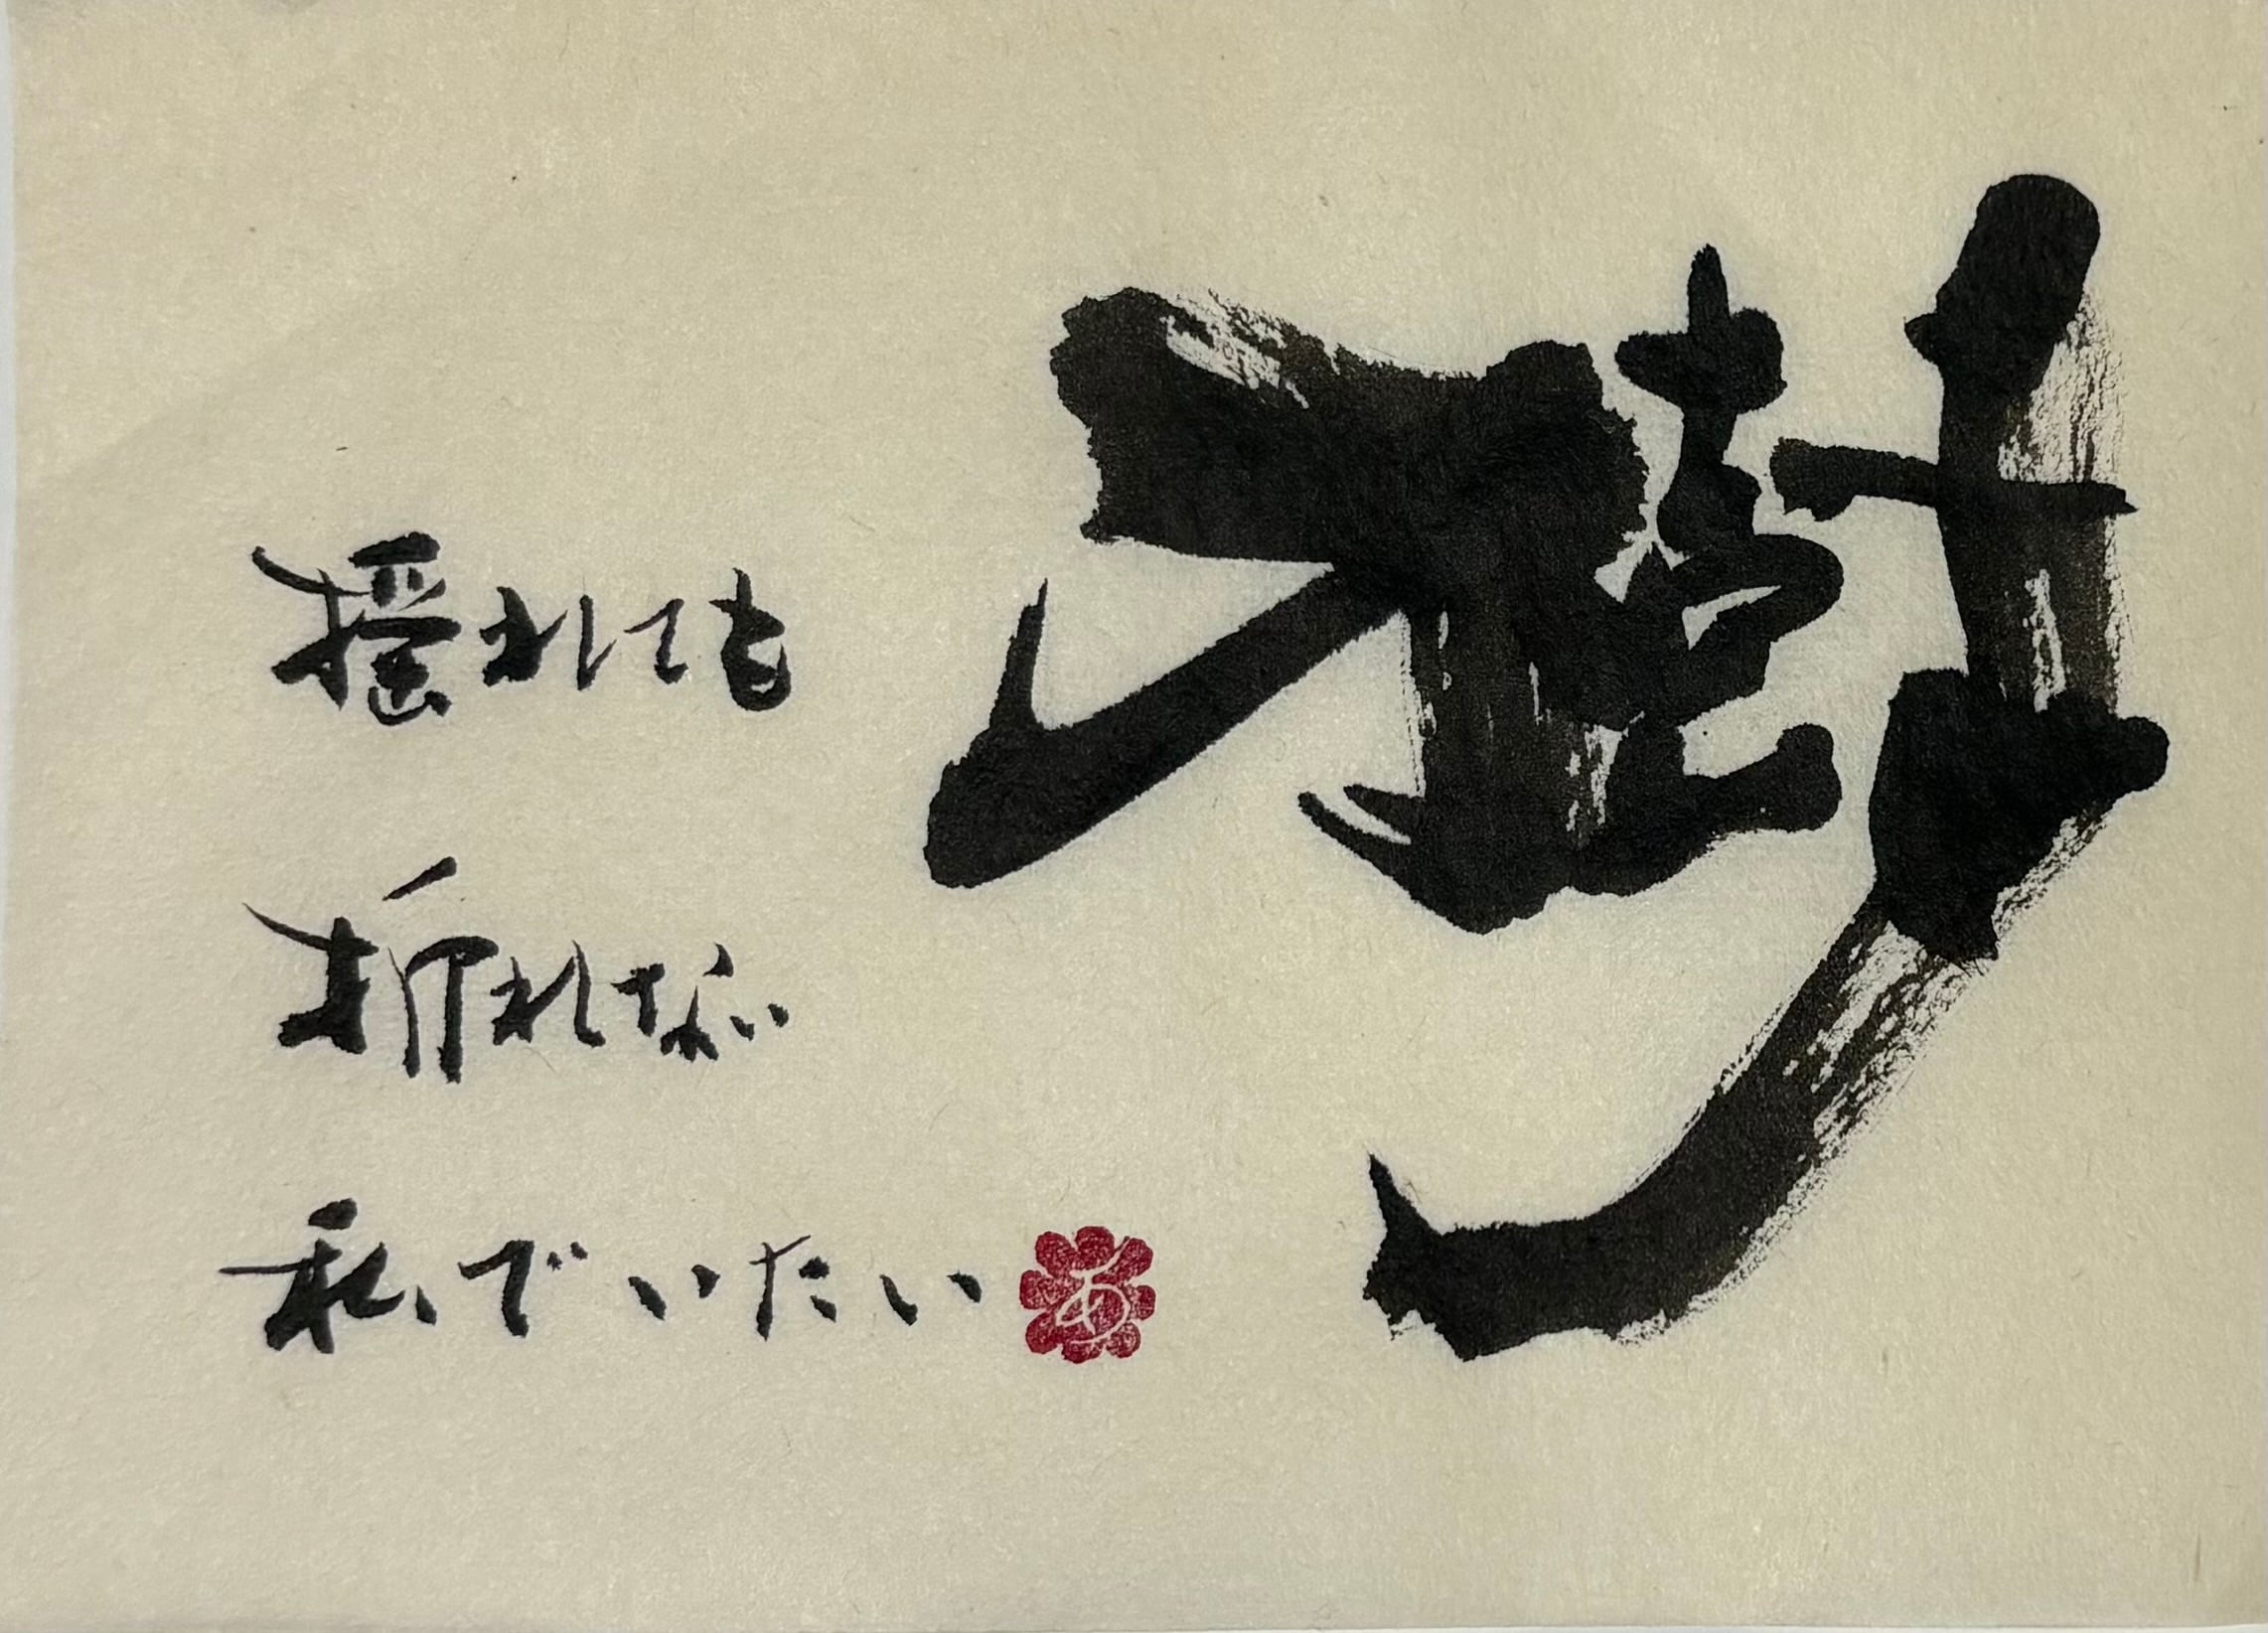 樹
揺れても
折れない
私でいたい
あ